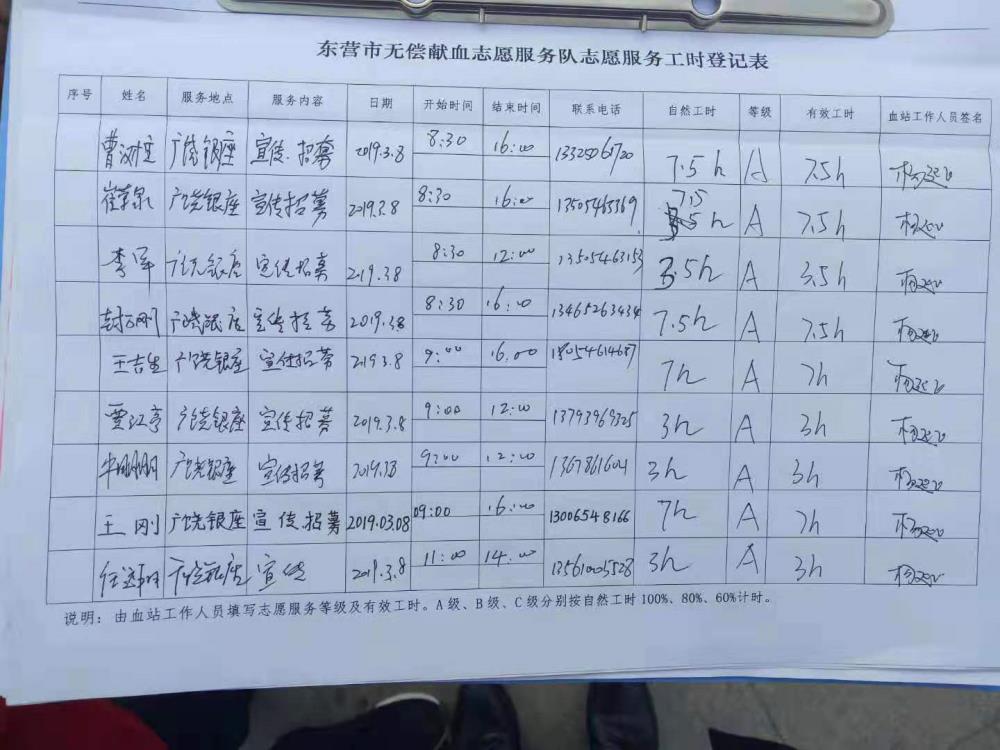 东营市无偿献血志愿服务队志愿服务工时登记表
序号 姓名 服务地点 服务内容 日期 开始时间 结束时间 联系电话 自然工时 等级 有效工时 血站工作人员签名
广饶银座 宣传.招募 2019.3.8 8:30 16:00 13325061720 7.5h A 7.5h
广饶银座 宣传招募 2019.3.8 8:30 16:00 13505465369 7.5 h A 7.5h
李军 广饶银座 宣传招募 2019.3.8 8:30 12:00 13505463153 3.5h A 3.5h
广饶银座 宣传招募 2019.3.8 8:30 16:00 13465263434 7.5h A 7.5h
王吉生 广饶银座 宣传招募 2019.3.8 9:00 16:00 18054614687 7h A 7h
贾江亭 广饶银座 宣传招募 2019.3.8 9:00 12:00 13793969325 3h A 3h
牛鹏鹏 广饶银座 宣传招募 2019.3.8 9:00 12:00 3h A 3h
王刚 广饶银座 宣传.招募 2019.03.08 09:00 16:00 13006548166 7h A 7h
广饶银座 宣传 2019.3.8 11:00 14:00 13561005528 3h A 3h
说明：由血站工作人员填写志愿服务等级及有效工时。A级、B级、C级分别按自然工时100%、80%、60%计时。